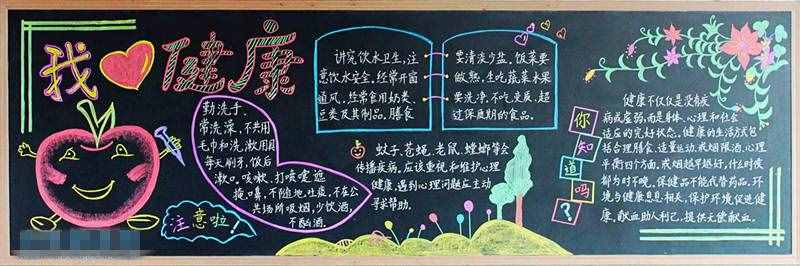 我 健康
勤洗手、
常洗澡，不共用
毛巾和洗漱用具
每天刷牙，饭后
漱口。咳嗽、打喷嚏遮
掩口鼻，不随地吐痰，不在公
共场所吸烟，少饮酒，
不酗酒。
注意啦！
讲究饮水卫生，注
意饮水安全。经常开窗
通风。经常食用奶类、
豆类及其制品。膳食
要清淡少盐。饭菜要
做熟，生吃蔬菜水果
要洗净。不吃变质、超
过保质期的食品。
蚊子、苍蝇、老鼠、蟑螂等会
传播疾病。应该重视和维护心理
健康，遇到心理问题应主动
寻求帮助。
你知道吗？
健康不仅仅是没有疾
病或虚弱，而是身体、心理和社会
适应的完好状态。健康的生活方式包
括合理膳食、适量运动、戒烟限酒、心理
平衡四个方面。戒烟越早越好，什么时候
都为时不晚。保健品不能代替药品。环
境与健康息息相关，保护环境促进健
康。献血助人利己，提倡无偿献血。